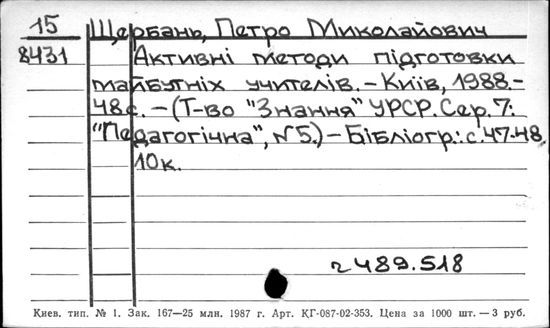 15 Щербань, Петро Миколайович
8431 Активні методи підготовки
майбутніх учителів. – Київ, 1988.–
48с. – (Т-во "Знання" УРСР. Сер. 7:
"Педагогічна", №5.) – Бібліогр.: с.47-48.
10к.
г 489.518
Киев. тип. № 1. Зак. 167—25 млн. 1987 г. Арт. КГ-087-02-353. Цена за 1000 шт. — 3 руб.